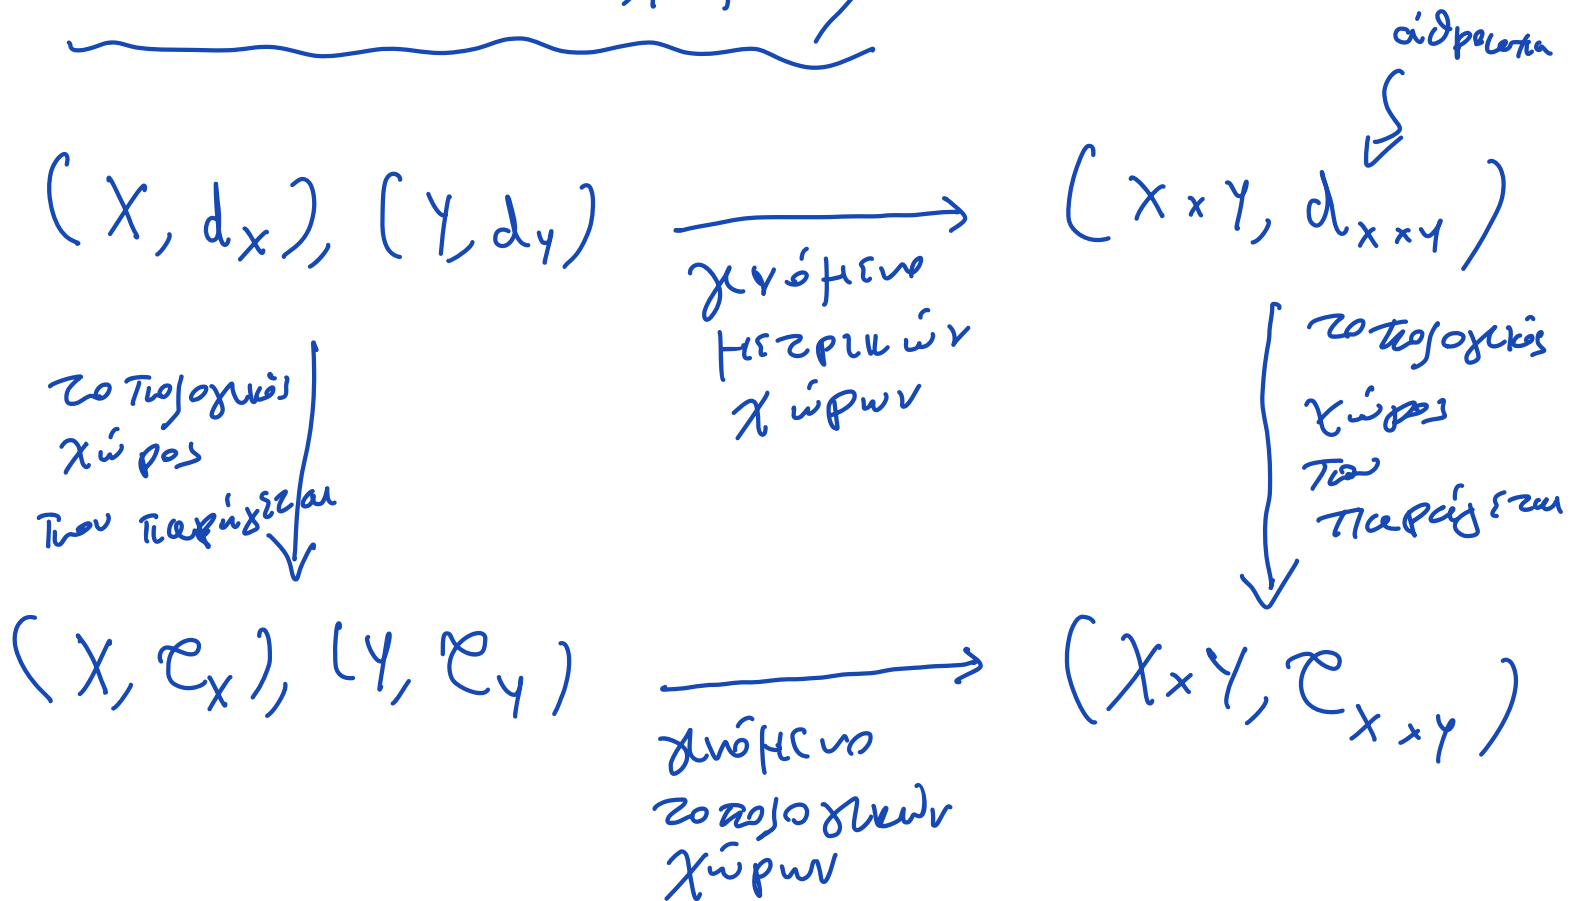 άθροισμα
(X, d_X), (Y, d_Y) → (X × Y, d_{X×Y})
γινόμενο
μετρικών
χώρων
τοπολογικός
χώρος
που παράγεται
τοπολογικός
χώρος
που
παράγεται
(X, τ_X), (Y, τ_Y) → (X × Y, τ_{X×Y})
γινόμενο
τοπολογικών
χώρων